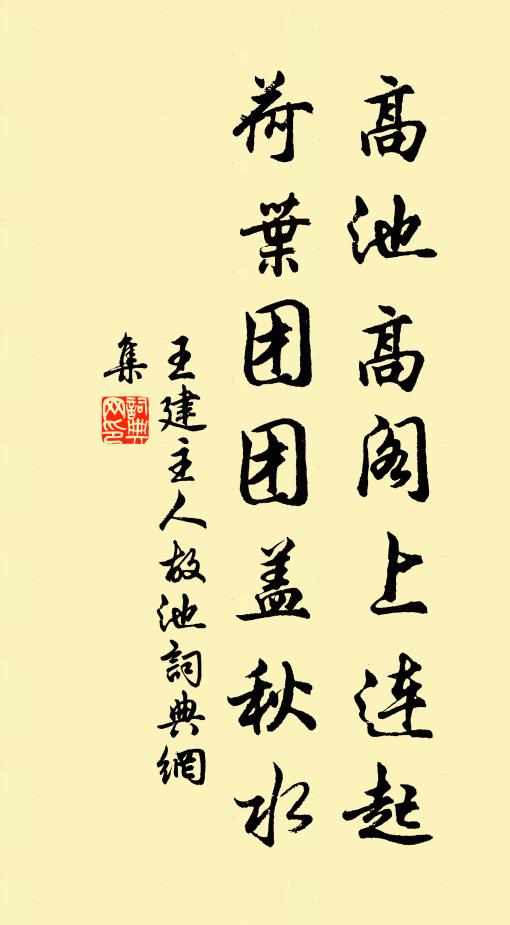 高池高阁上连起
荷葉团团盖秋水
王建主人故池詞典網
集
詞典
网印